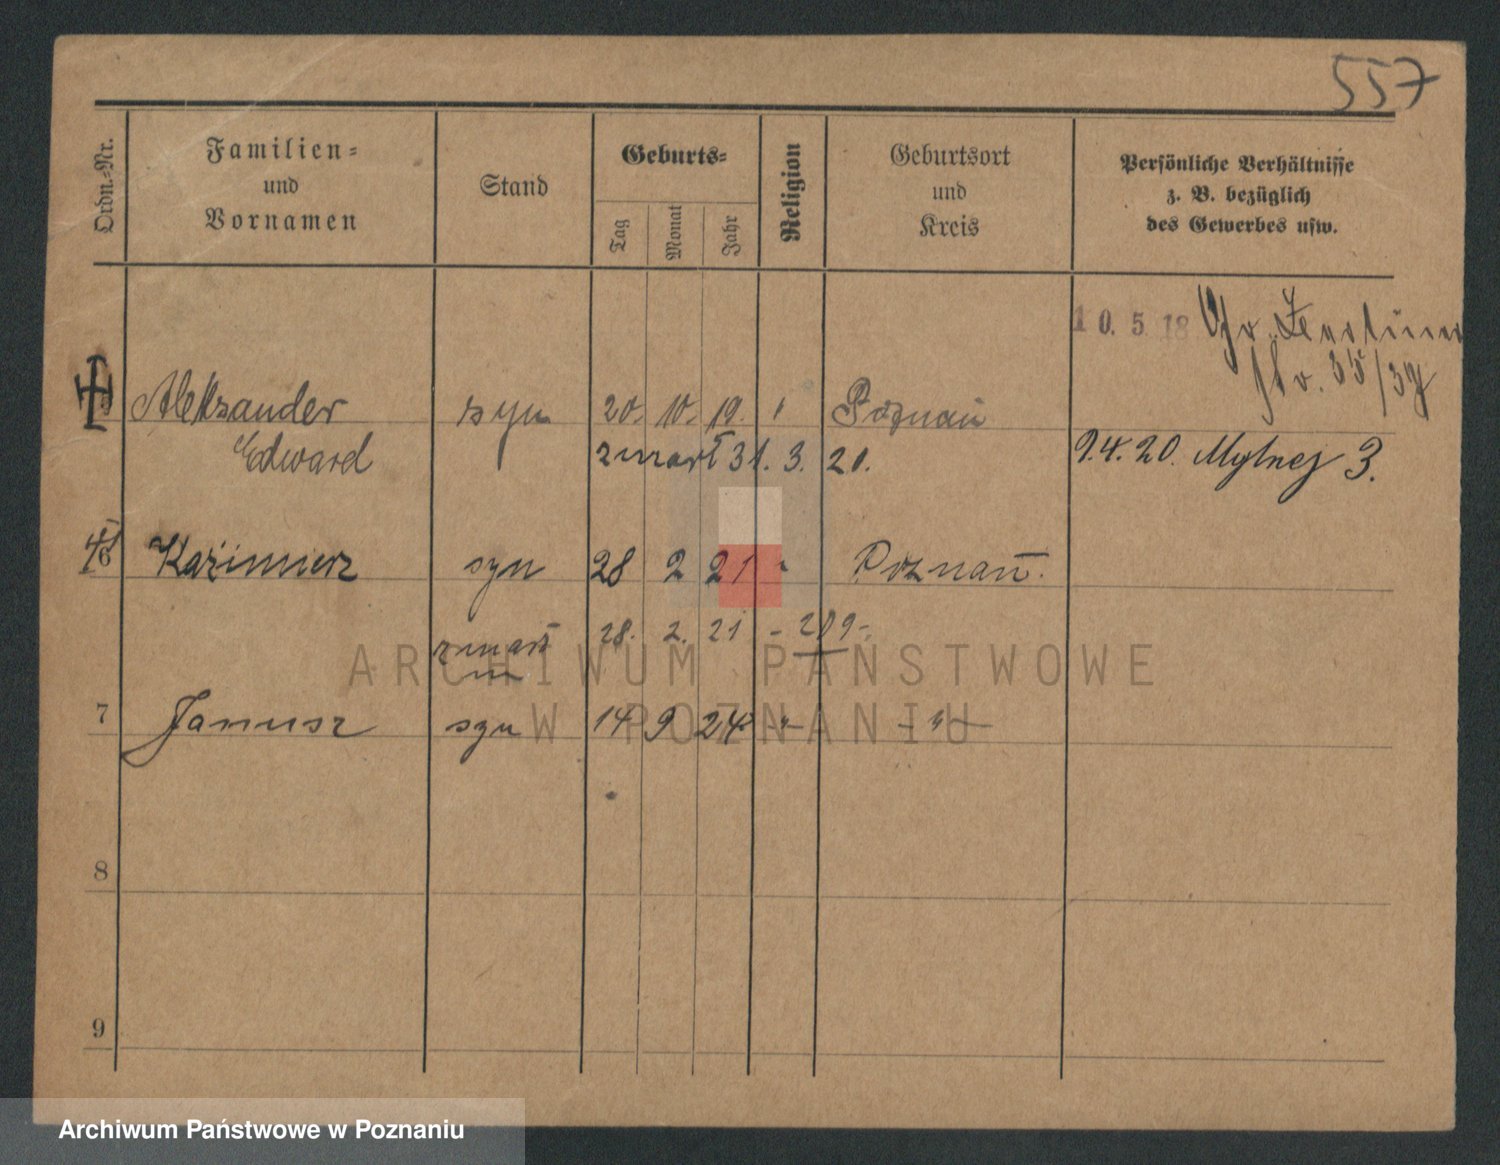 557
Ordn.-Nr.
Familien-
und
Vornamen
Stand
Geburts-
Tag
Monat
Jahr
Religion
Geburtsort
und
Kreis
Persönliche Verhältnisse
z. B. bezüglich
des Gewerbes usw.
10. 5. 18
35/39
Aleksander syn 20. 10. 19. Poznań
Edward zmarł 31. 3. 20. 9.4.20. Mylnej 3.
6 Kazimierz syn 28 2 21 " Poznań.
zmarł 28. 2. 21 - 209-
7 Janusz syn 14 9 24 -"- -"-
8
9
ARCHIWUM PAŃSTWOWE
W POZNANIU
Archiwum Państwowe w Poznaniu